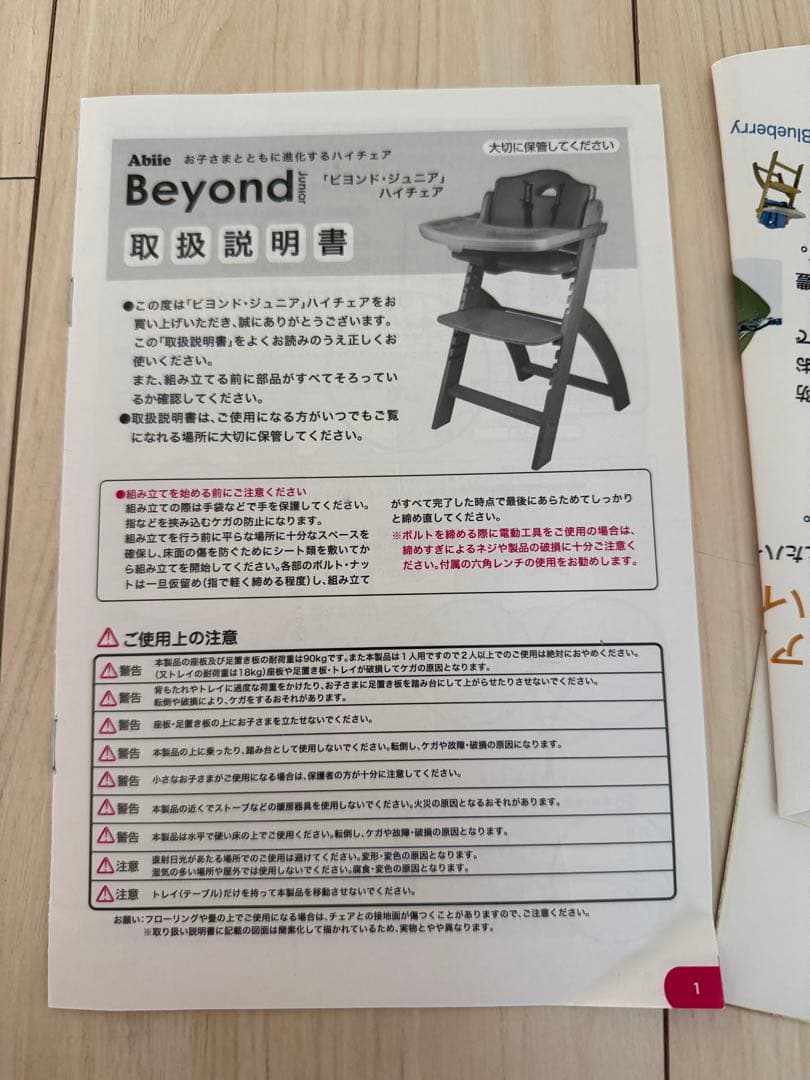 Abiie お子さまとともに進化するハイチェア
大切に保管してください
Beyond Junior 「ビヨンド・ジュニア」
ハイチェア
取扱説明書
●この度は「ビヨンド・ジュニア」ハイチェアをお
買い上げいただき、誠にありがとうございます。
この「取扱説明書」をよくお読みのうえ正しくお
使いください。
また、組み立てる前に部品がすべてそろってい
るか確認してください。
●取扱説明書は、ご使用になる方がいつでもご覧
になれる場所に大切に保管してください。
●組み立てを始める前にご注意ください
組み立ての際は手袋などで手を保護してください。
指などを挟み込むケガの防止になります。
組み立てを行う前に平らな場所に十分なスペースを
確保し、床面の傷を防ぐためにシート類を敷いてか
ら組み立てを開始してください。各部のボルト・ナッ
トは一旦仮留め(指で軽く締める程度)し、組み立て
がすべて完了した時点で最後にあらためてしっかり
と締め直してください。
※ボルトを締める際に電動工具をご使用の場合は、
締めすぎによるネジや製品の破損に十分ご注意く
ださい。付属の六角レンチの使用をお勧めします。
ご使用上の注意
警告 本製品の座板及び足置き板の耐荷重は90kgです。また本製品は1人用ですので2人以上でのご使用は絶対におやめください。
(又トレイの耐荷重は18kg)座板や足置き板・トレイが破損してケガの原因となります。
警告 背もたれやトレイに過度な荷重をかけたり、お子さまに足置き板を踏み台にして上がらせたりさせないでください。
転倒や破損により、ケガをするおそれがあります。
警告 座板・足置き板の上にお子さまを立たせないでください。
警告 本製品の上に乗ったり、踏み台として使用しないでください。転倒し、ケガや故障・破損の原因になります。
警告 小さなお子さまがご使用になる場合は、保護者の方が十分に注意してください。
警告 本製品の近くでストーブなどの暖房器具を使用しないでください。火災の原因となるおそれがあります。
警告 本製品は水平で硬い床の上でご使用ください。転倒し、ケガや故障・破損の原因となります。
注意 直射日光があたる場所でのご使用は避けてください。変形・変色の原因となります。
湿気の多い場所や屋外では使用しないでください。腐食・変色の原因となります。
注意 トレイ(テーブル)だけを持って本製品を移動させないでください。
お願い:フローリングや畳の上でご使用になる場合は、チェアとの接地面が傷つくことがありますので、ご注意ください。
※取り扱い説明書に記載の図面は簡素化して描かれているため、実物とやや異なります。
1
Blueberry